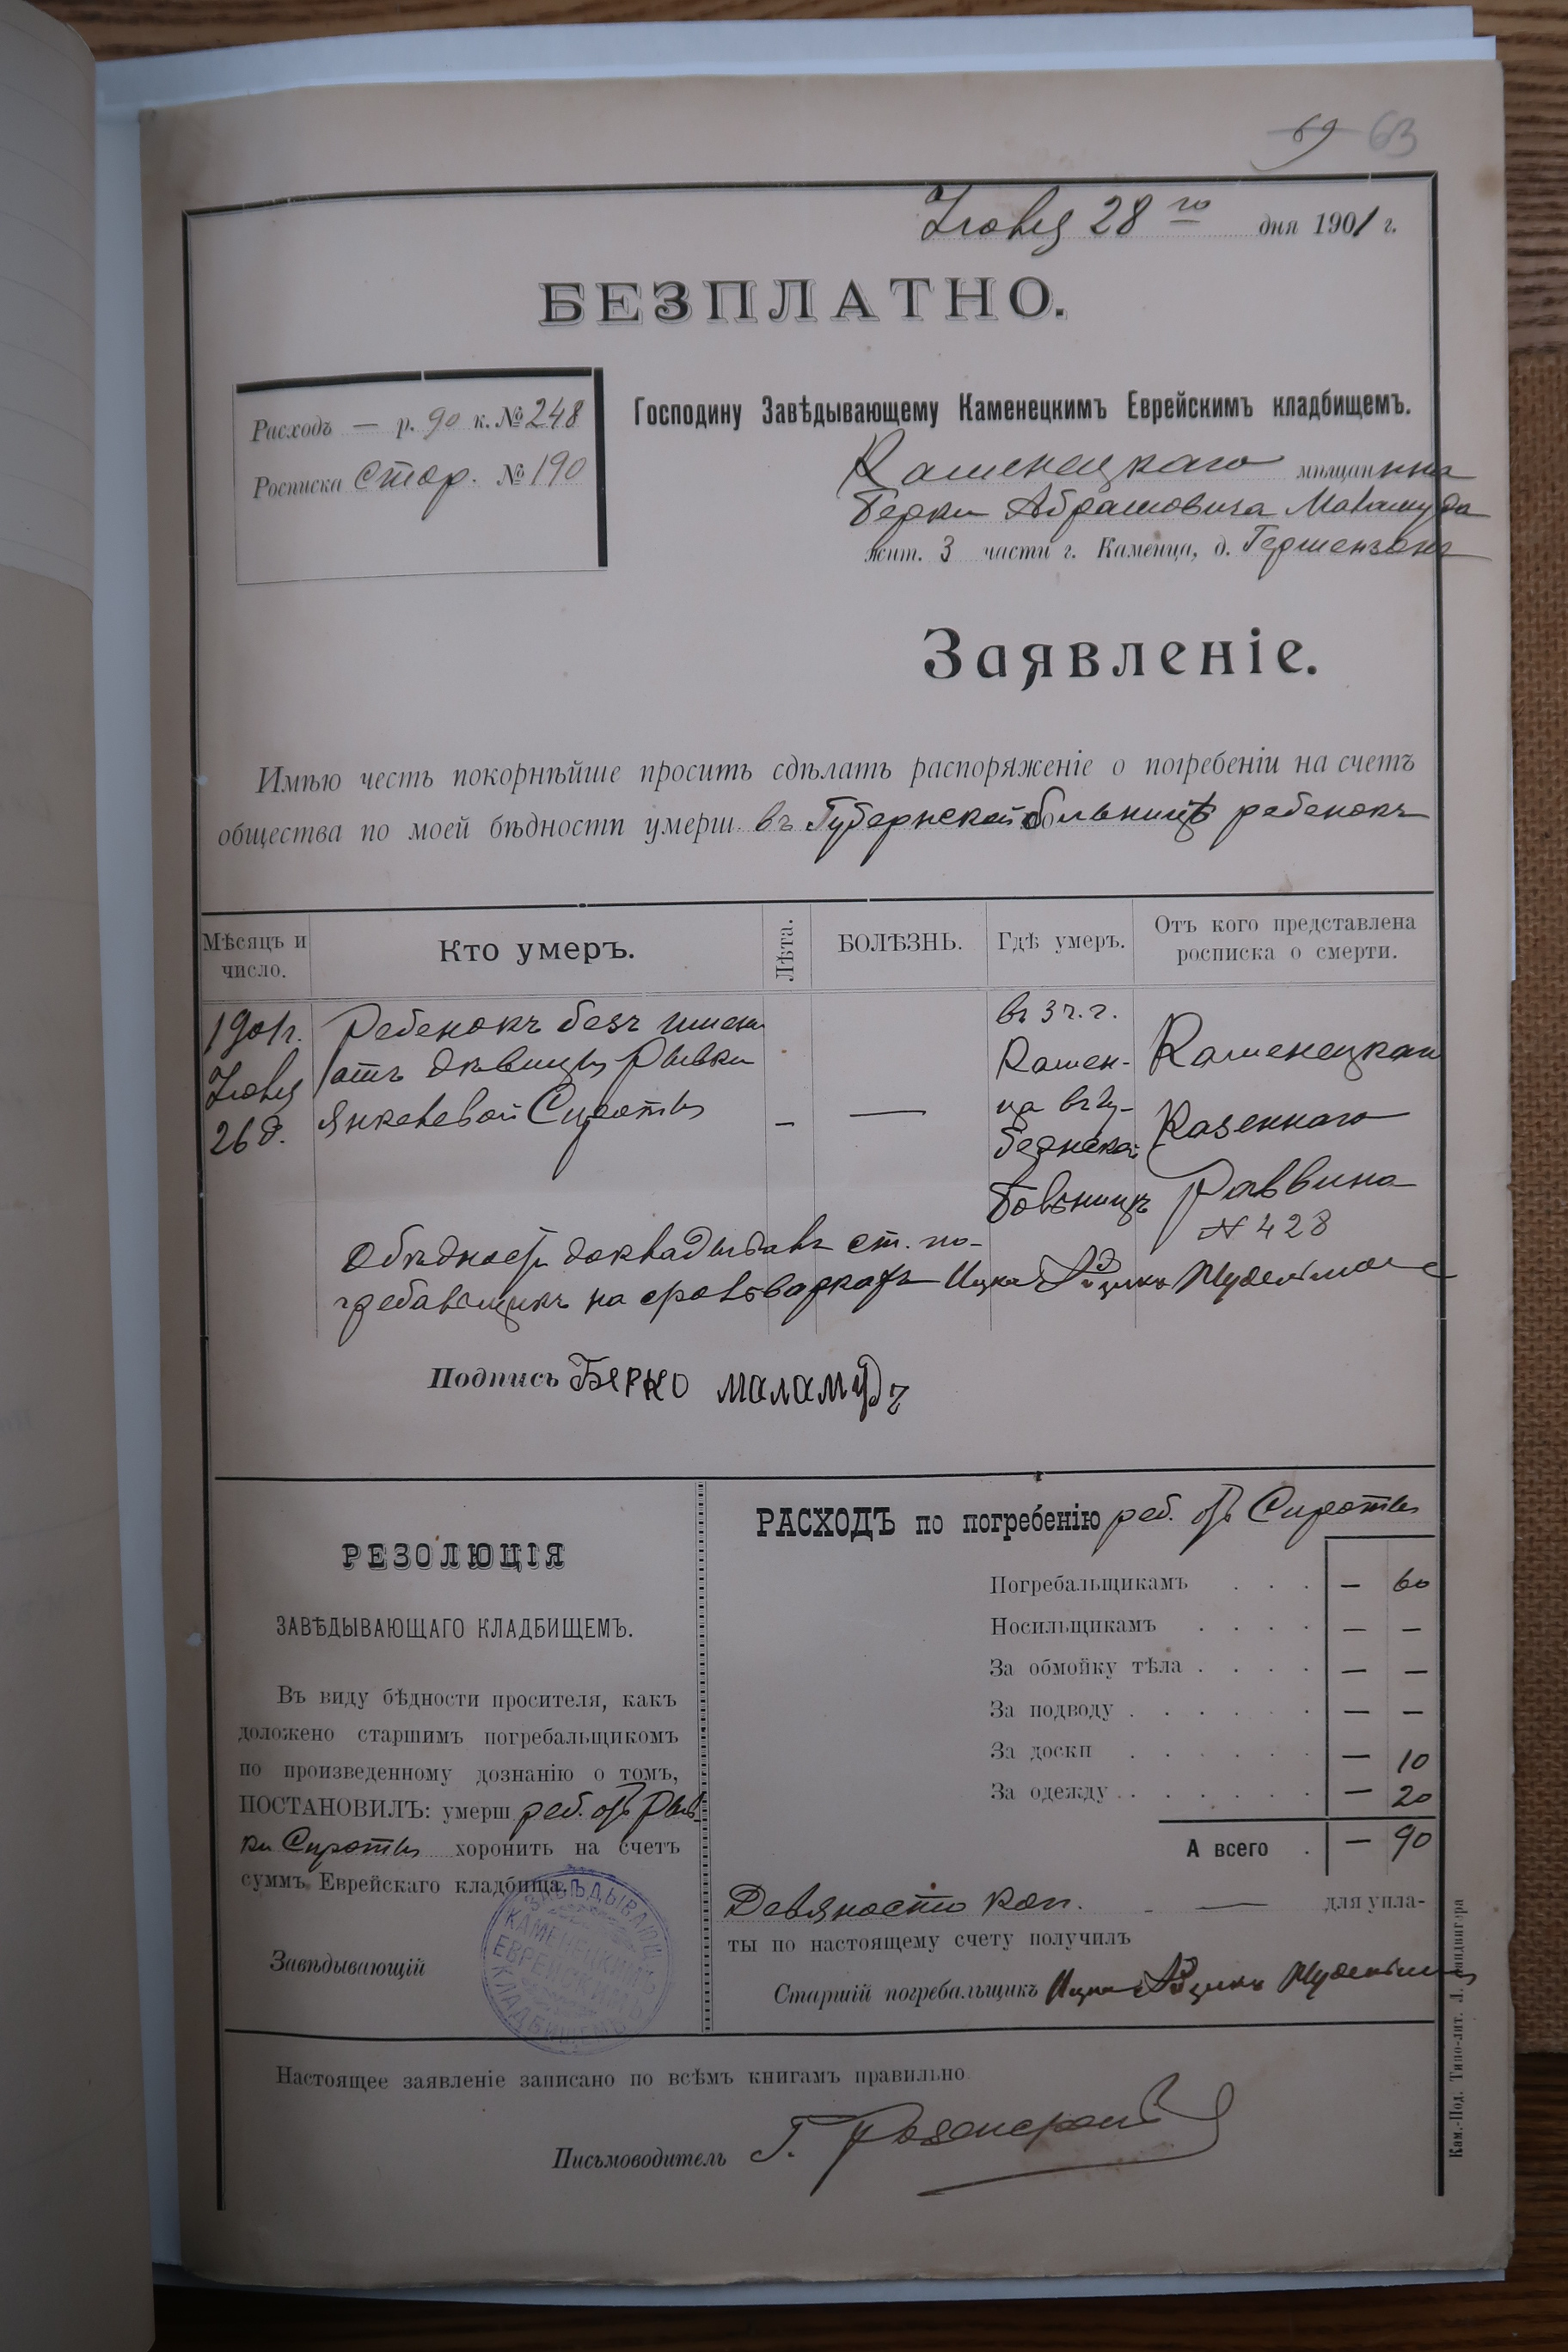 69 63
Іюля 28 го дня 1901 г.
БЕЗПЛАТНО.
Расходъ — р. 90 к. № 248
Росписка Стор. № 190
Господину Завѣдывающему Каменецкимъ Еврейскимъ кладбищемъ.
Каменецкаго мѣщанина
Берки Абрамовича Маламуда
жит. 3 части г. Каменца, д. Гершензона
Заявленіе.
Имѣю честь покорнѣйше просить сдѣлать распоряженіе о погребеніи на счетъ
общества по моей бѣдности умерш. въ Губернской больницѣ ребенокъ
Мѣсяцъ и число.
Кто умеръ.
Лѣта.
БОЛѢЗНЬ.
Гдѣ умеръ.
Отъ кого представлена росписка о смерти.
1901 г.
Іюля
26 д.
Ребенокъ безъ имени
отъ дѣвицы Рывки
Янкелевой Сироты
–
—
въ 3 ч. г.
Камен-
ца въ гу-
бернской
больницѣ
Каменецкаго
Казеннаго
Раввина
№ 428
О бѣдности докладывалъ ст. по-
гребальщикъ Ицко
Подпись Берко маламудъ
РЕЗОЛЮЦІЯ
ЗАВѢДЫВАЮЩАГО КЛАДБИЩЕМЪ.
Въ виду бѣдности просителя, какъ
доложено старшимъ погребальщикомъ
по произведенному дознанію о томъ,
ПОСТАНОВИЛЪ: умерш реб. отъ Рыв-
ки Сироты хоронить на счетъ
суммъ Еврейскаго кладбища.
Завѣдывающій
ЗАВѢДЫВАЮЩ.
КАМЕНЕЦКИМЪ
ЕВРЕЙСКИМЪ
КЛАДБИЩЕМЪ
РАСХОДЪ по погребенію реб. отъ Сироты
Погребальщикамъ . . . — 60
Носильщикамъ . . . . — —
За обмойку тѣла . . . . — —
За подводу . . . . . . — —
За доски . . . . . . — 10
За одежду . . . . . . . — 20
А всего . — 90
Девяносто коп. — для упла-
ты по настоящему счету получилъ
Старшій погребальщикъ Ицко
Настоящее заявленіе записано по всѣмъ книгамъ правильно
Письмоводитель Г.
Кам.-Под. Типо-лит. Л.